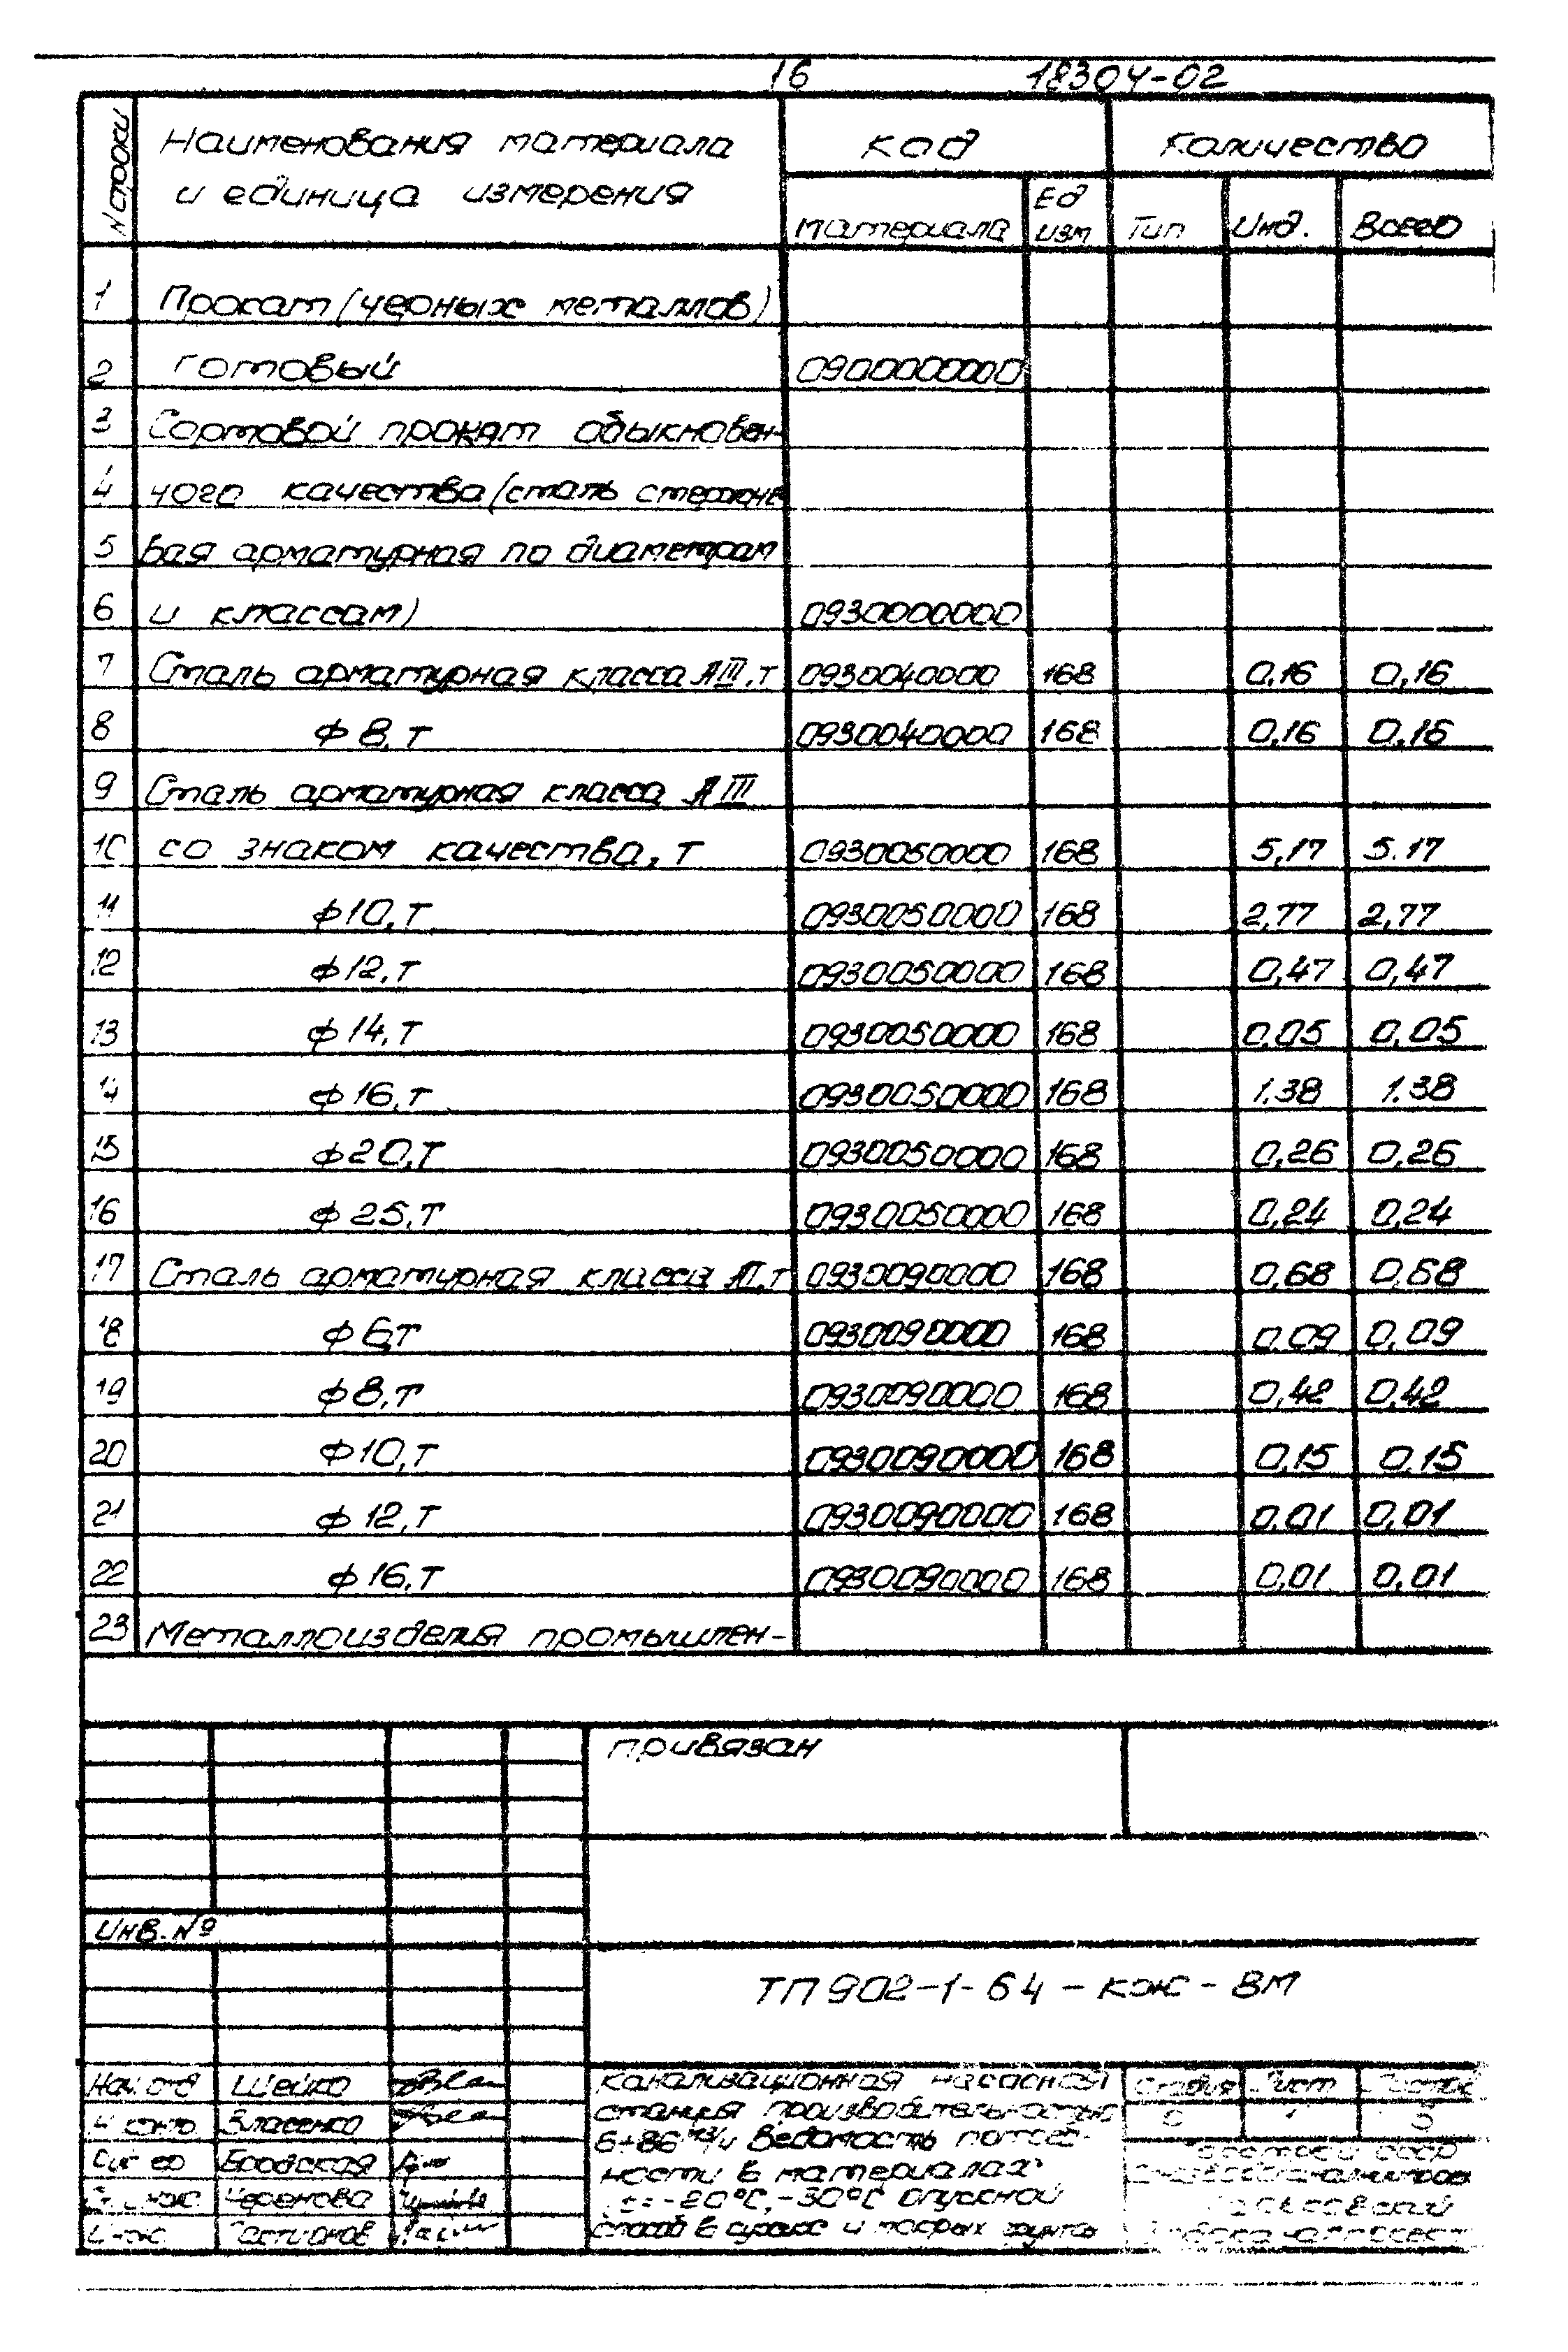 16 18304-02
N строки Наименования материала и единица измерения код Количество
материала Ед изм Тип Инд. Всего
1 Прокат (черных металлов)
2 готовый 0900000000
3 Сортовой прокат обыкновен-
4 ного качества (сталь стержне
5 вая арматурная по диаметрам
6 и классам) 0930000000
7 Сталь арматурная класса АIII, т 0930040000 168 0,16 0,16
8 ф 8, т 0930040000 168 0,16 0,16
9 Сталь арматурная класса АIII
10 со знаком качества, т 0930050000 168 5,17 5.17
11 ф10, т 0930050000 168 2,77 2,77
12 ф12, т 0930050000 168 0,47 0,47
13 ф14, т 0930050000 168 0,05 0,05
14 ф16, т 0930050000 168 1.38 1.38
15 ф20, т 0930050000 168 0,26 0,26
16 ф25, т 0930050000 168 0,24 0,24
17 Сталь арматурная класса т 0930090000 168 0,68 0,68
18 ф6, т 0930090000 168 0,09 0,09
19 ф8, т 0930090000 168 0,42 0,42
20 ф10, т 0930090000 168 0,15 0,15
21 ф12, т 0930090000 168 0,01 0,01
22 ф16, т 0930090000 168 0,01 0,01
23 Металлоизделия промышлен-
привязан
Инв. №
ТП 902-1-64 - кж - ВМ
Нач. отд Шейко
Власенко
Бродская
Черенова
канализационная насосная
станция производительностью
6÷86 м³/ч Ведомость потреб-
ности в материалах
t=-20°C, -30°C опускной
способ в сухих и мокрых грунтах
Стадия Лист Листов